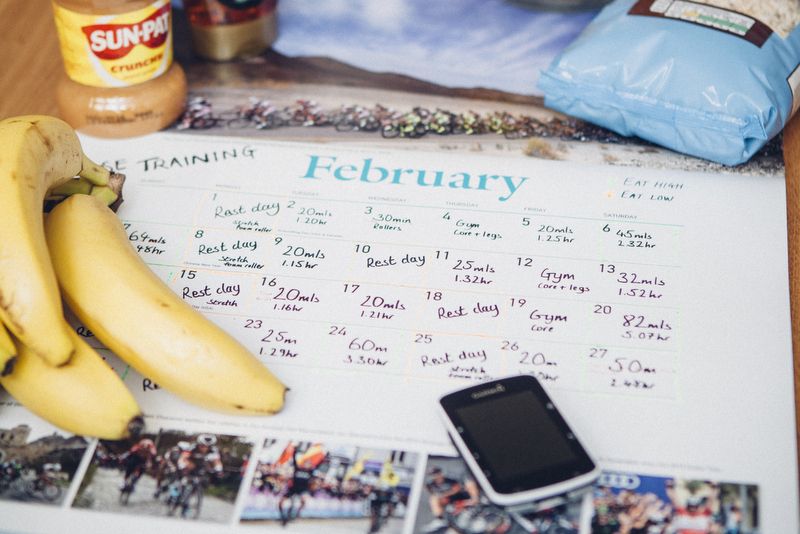 SUN-PAT
crunchy
SE TRAINING
February
EAT HIGH
EAT LOW
MONDAY
TUESDAY
WEDNESDAY
THURSDAY
FRIDAY
SATURDAY
1 Rest day
stretch
foam roller
2 20mls
1.20hr
3 30min
Rollers
4 Gym
Core + legs
5 20mls
1.25hr
6 45mls
2.32hr
7 64mls
48hr
8 Rest day
stretch
foam roller
9 20mls
1.15hr
10 Rest day
11 25mls
1.32hr
12 Gym
Core + legs
13 32mls
1.52hr
15 Rest day
stretch
16 20mls
1.16hr
17 20mls
1.21hr
18 Rest day
19 Gym
core
20 82mls
5.07hr
23 25m
1.29hr
24 60m
3.30hr
25 Rest day
stretch
foam roller
26 20m
27 50m
2.48hr
Re
GARMIN